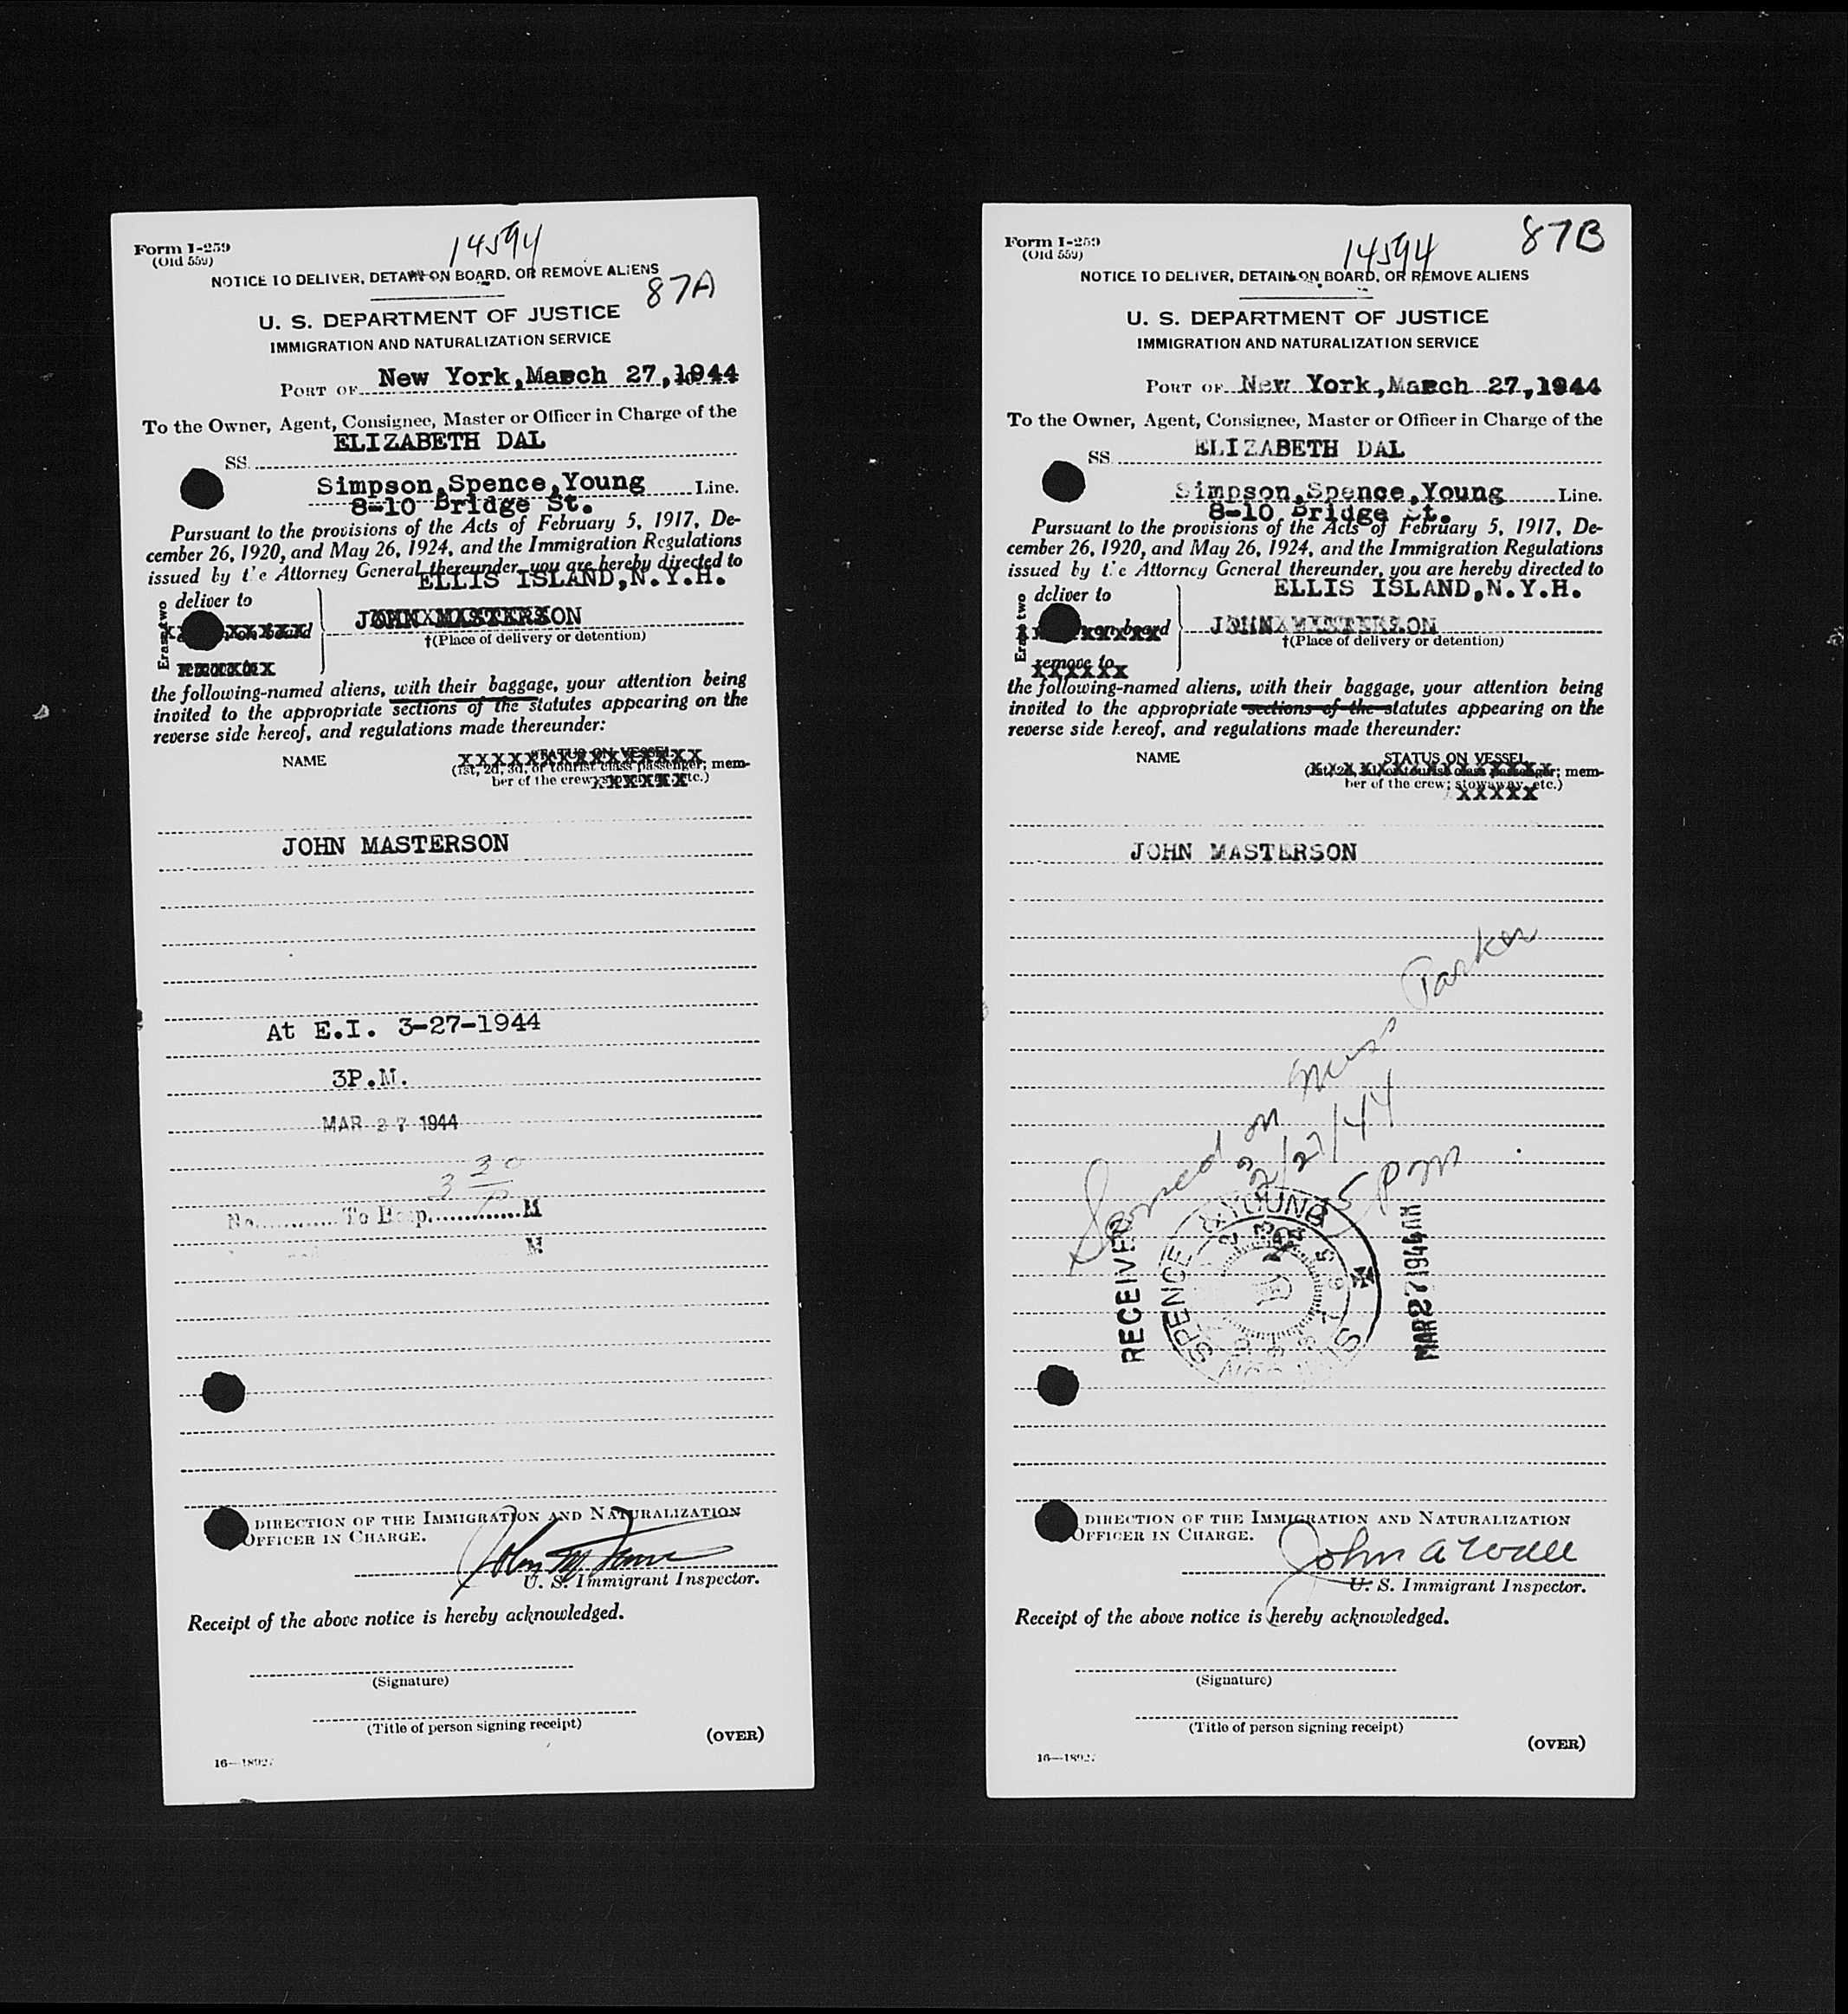 Form I-259
(Old 559)
14594
NOTICE TO DELIVER, DETAIN ON BOARD, OR REMOVE ALIENS
87A
U. S. DEPARTMENT OF JUSTICE
IMMIGRATION AND NATURALIZATION SERVICE
PORT OF New York, March 27, 1944
To the Owner, Agent, Consignee, Master or Officer in Charge of the
SS. ELIZABETH DAL
Simpson, Spence, Young Line.
8-10 Bridge St.
Pursuant to the provisions of the Acts of February 5, 1917, De-
cember 26, 1920, and May 26, 1924, and the Immigration Regulations
issued by the Attorney General thereunder, you are hereby directed to
ELLIS ISLAND, N.Y.H.
Erase two
deliver to
on board
JOHN MASTERSON
†(Place of delivery or detention)
the following-named aliens, with their baggage, your attention being
invited to the appropriate sections of the statutes appearing on the
reverse side hereof, and regulations made thereunder:
NAME
STATUS ON VESSEL
(1st, 2d, 3d, or tourist class passenger; mem-
ber of the crew; etc.)
JOHN MASTERSON
At E.I. 3-27-1944
3P.M.
MAR 27 1944
3 30
No. To Hosp. M
M
DIRECTION OF THE IMMIGRATION AND NATURALIZATION
OFFICER IN CHARGE.
U. S. Immigrant Inspector.
Receipt of the above notice is hereby acknowledged.
(Signature)
(Title of person signing receipt)
(OVER)
16—18927
Form I-259
(Old 559)
14594
87B
NOTICE TO DELIVER, DETAIN ON BOARD, OR REMOVE ALIENS
U. S. DEPARTMENT OF JUSTICE
IMMIGRATION AND NATURALIZATION SERVICE
PORT OF New York, March 27, 1944
To the Owner, Agent, Consignee, Master or Officer in Charge of the
SS. ELIZABETH DAL
Simpson, Spence, Young Line.
8-10 Bridge St.
Pursuant to the provisions of the Acts of February 5, 1917, De-
cember 26, 1920, and May 26, 1924, and the Immigration Regulations
issued by the Attorney General thereunder, you are hereby directed to
ELLIS ISLAND, N.Y.H.
Erase two
deliver to
on board
JOHN MASTERSON
†(Place of delivery or detention)
remove to
the following-named aliens, with their baggage, your attention being
invited to the appropriate sections of the statutes appearing on the
reverse side hereof, and regulations made thereunder:
NAME
STATUS ON VESSEL
(1st, 2d, 3d, or tourist class passenger; mem-
ber of the crew; stowaway, etc.)
JOHN MASTERSON
Served on Miss Parker
3/27/44
5 pm
RECEIVED
SPENCE & YOUNG
MAR 27 1944
DIRECTION OF THE IMMIGRATION AND NATURALIZATION
OFFICER IN CHARGE.
John A Wall
U. S. Immigrant Inspector.
Receipt of the above notice is hereby acknowledged.
(Signature)
(Title of person signing receipt)
(OVER)
16—18927